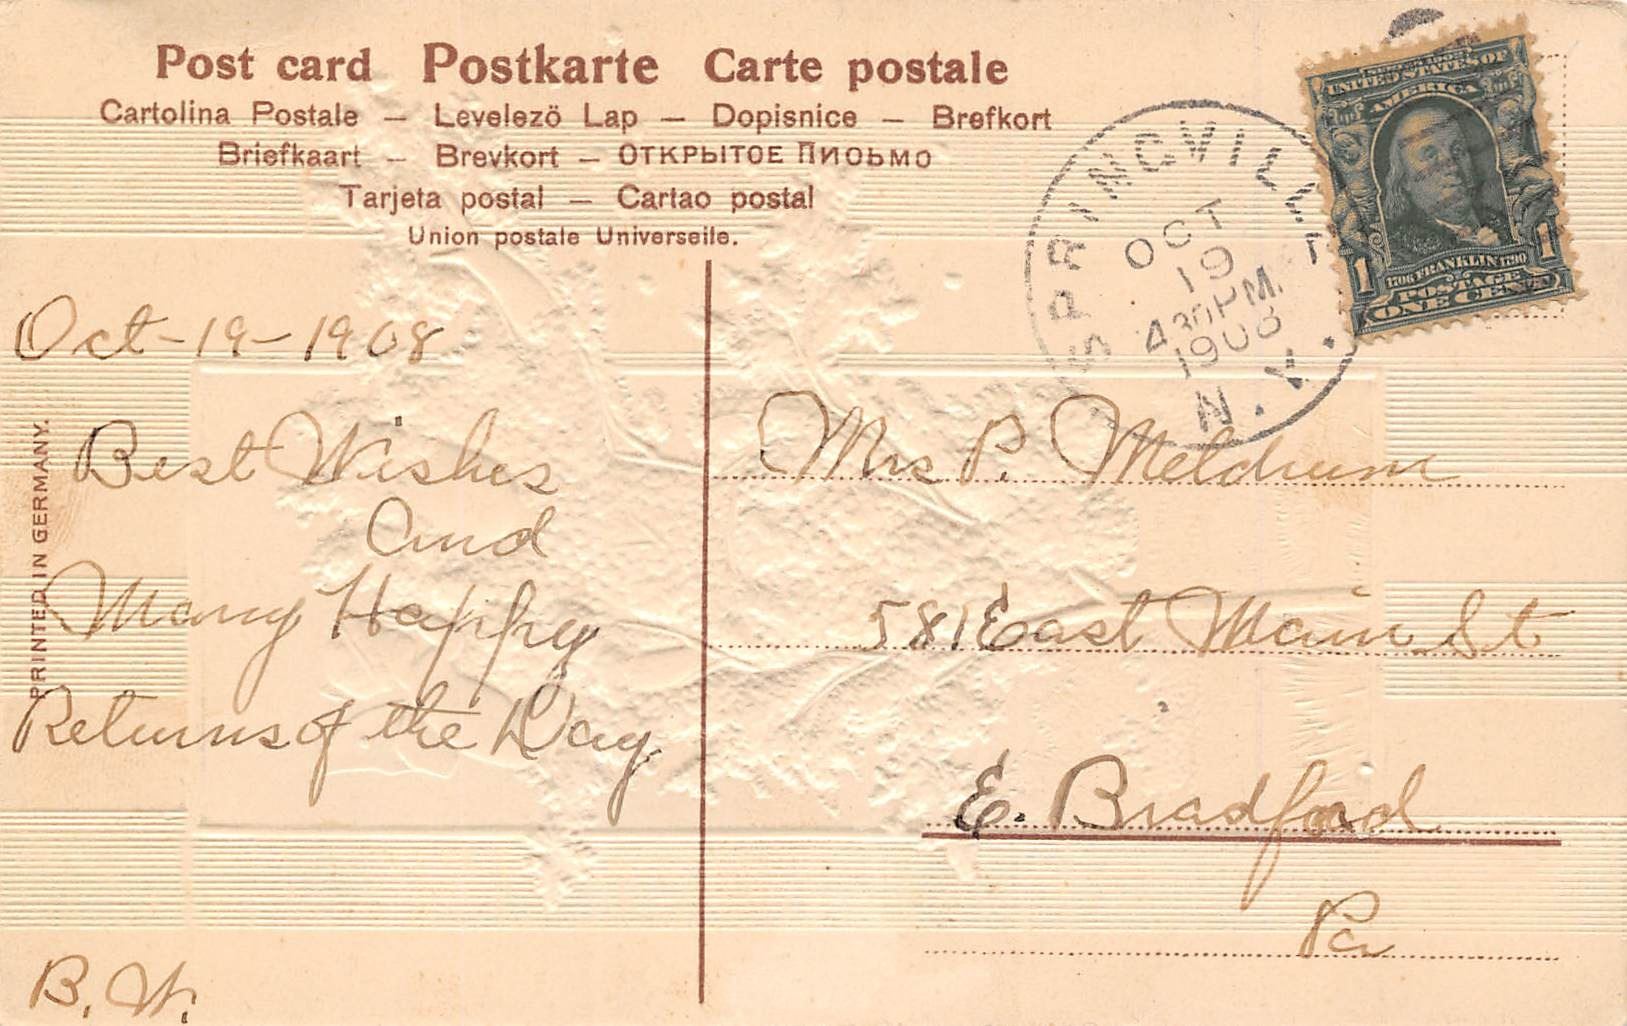 Post card Postkarte Carte postale
Cartolina Postale — Levelezö Lap — Dopisnice — Brefkort
Briefkaart — Brevkort — ОТКРЫТОЕ ПИОЬМО
Tarjeta postal — Cartao postal
Union postale Universelle.
SPRINGVILLE
OCT
19
430 PM.
1908
N.Y.
UNITED STATES OF
AMERICA
1706 FRANKLIN 1790
1 POSTAGE 1
ONE CENT
PRINTED IN GERMANY.
Oct-19-1908
Best Wishes
and
Many Happy
Returns of the Day.
B. W.
Mrs P. Meldrum
581 East Main St
E. Bradford
Pa